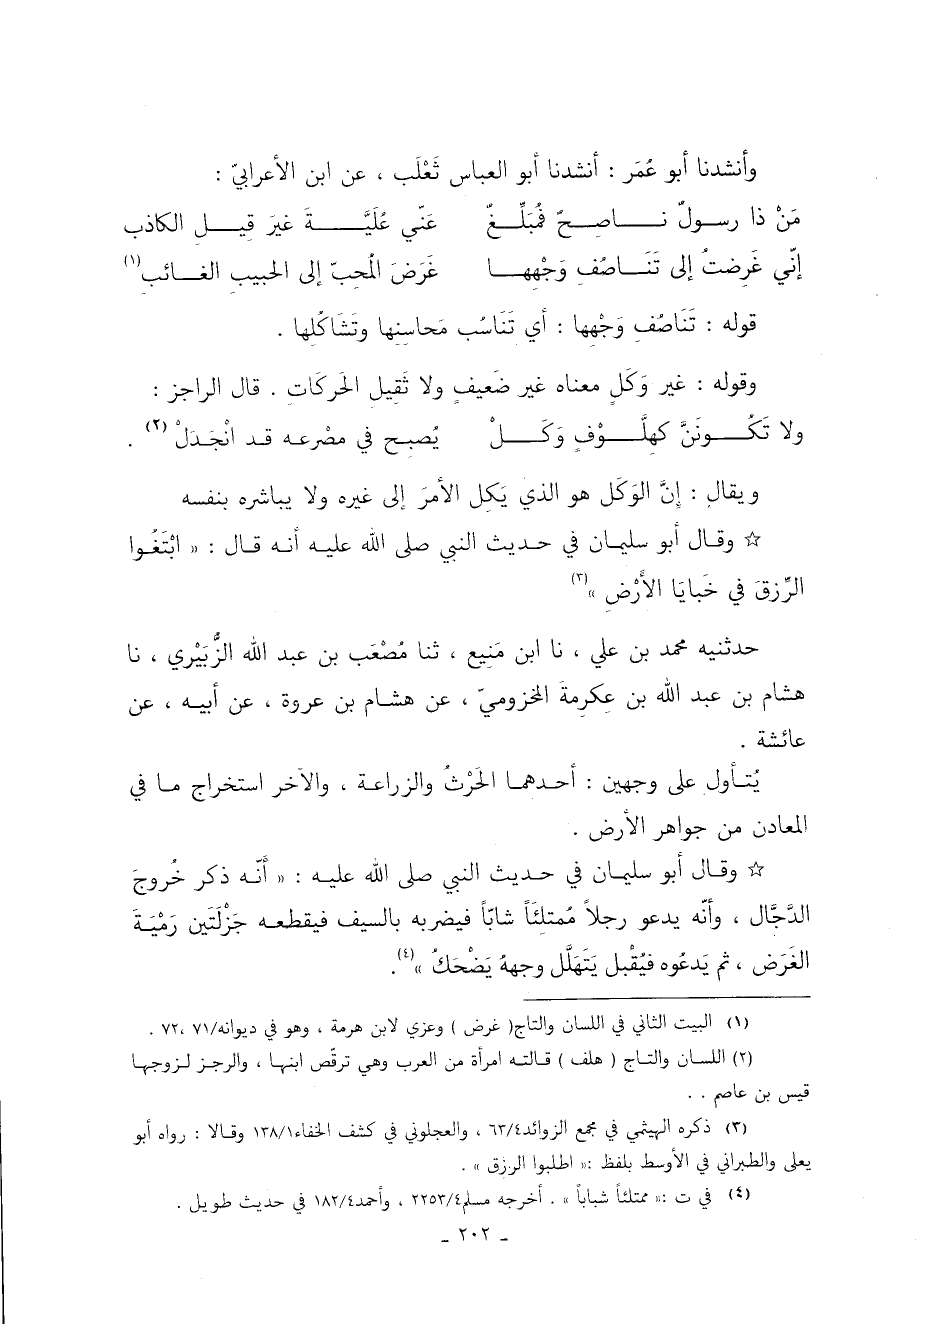 وأنشدنا أبو عُمَر : أنشدنا أبو العباس ثَعْلَب ، عن ابن الأعرابيّ :
مَنْ ذا رسولٌ ناصحٌ فمُبَلِّغٌ عنّي عُلَيَّةَ غيرَ قيلِ الكاذب
إنّي غَرِضتُ إلى تَنَاصُفِ وَجْهِها غَرَضَ المُحبّ إلى الحبيب الغائب (١)
قوله : تَنَاصُف وَجْهِها : أي تَنَاسُب مَحاسنِها وتَشَاكُلها .
وقوله : غير وَكَلٍ معناه غير ضَعيفٍ ولا ثَقيل الحَركَات . قال الراجز :
ولا تَكُونَنَّ كهِلَّوْفٍ وَكَلْ يُصبح في مضْرعه قد انْجَدَلْ (٢) .
ويقال : إنَّ الوَكَل هو الذي يَكِل الأمرَ إلى غيره ولا يباشره بنفسه
☆ وقال أبو سليمان في حديث النبي صلى الله عليه أنه قال : « ابْتَغُوا
الرِّزقَ في خَبايَا الأَرْضِ »(٣)
حدثنيه محمد بن علي ، نا ابن مَنِيع ، ثنا مُصْعَب بن عبد الله الزُّبَيْري ، نا
هشام بن عبد الله بن عِكرمةَ المخزوميّ ، عن هشام بن عروة ، عن أبيه ، عن
عائشة .
يُتأول على وجهين : أحدهما الحَرْثُ والزراعة ، والآخر استخراج ما في
المعادن من جواهر الأرض .
☆ وقال أبو سليمان في حديث النبي صلى الله عليه : « أنّه ذكر خُروجَ
الدَّجَّال ، وأنّه يدعو رجلاً مُمتلئَاً شابّاً فيضربه بالسيف فيقطعه جَزْلَتَين رَمْيَةَ
الغَرَض ، ثم يَدعُوه فيُقْبل يَتَهلَّل وجههُ يَضْحَكُ »(٤).
(١) البيت الثاني في اللسان والتاج( غرض ) وعزي لابن هرمة ، وهو في ديوانه/٧١ ،٧٢ .
(٢) اللسان والتاج ( هلف ) قالته امرأة من العرب وهي ترقّص ابنها ، والرجز لزوجها
قيس بن عاصم . .
(٣) ذكره الهيثمي في مجمع الزوائد٦٣/٤ ، والعجلوني في كشف الخفاء١٣٨/١ وقالا : رواه أبو
يعلى والطبراني في الأوسط بلفظ :« اطلبوا الرزق » .
(٤) في ت :« ممتلئاً شباباً » . أخرجه مسلم٢٢٥٣/٤ ، وأحمد١٨٢/٤ في حديث طويل .
- ٢٠٢ -